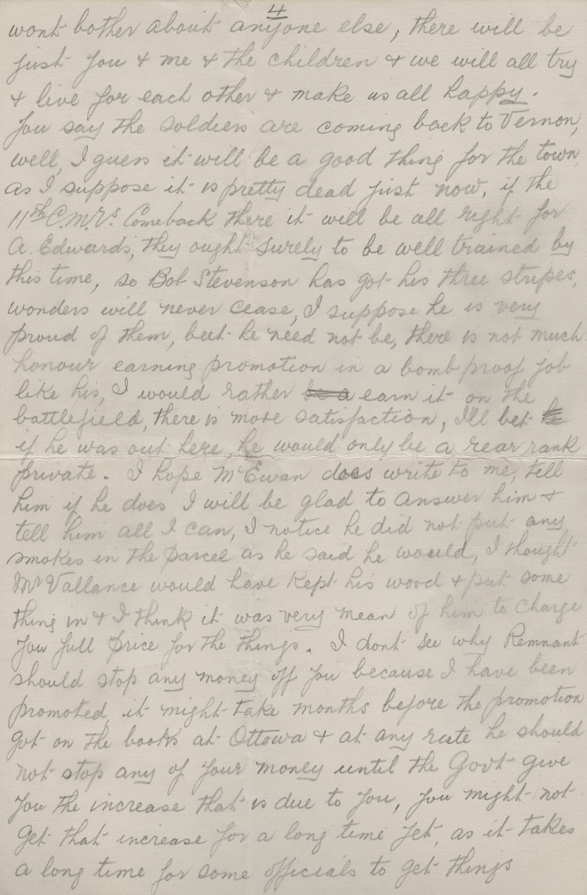 4
wont bother about anyone else, there will be
just you & me & the children & we will all try
& live for each other & make us all happy.
You say the soldiers are coming back to Vernon,
well, I guess it will be a good thing for the town,
as I suppose it is pretty dead just now, if the
11th C.M.R.s. Come back there it will be all right for
A. Edwards, they ought surely to be well trained by
this time, so Bob Stevenson has got his three stripes,
wonders will never cease, I suppose he is very
proud of them, but he need not be, there is not much
honour earning promotion in a bomb proof job
like his, I would rather be a earn it on the
battlefield, there is more satisfaction, I'll bet he
if he was out here, he would only be a rear rank
private. I hope McEwan does write to me, tell
him if he does I will be glad to answer him &
tell him all I can, I notice he did not put any
smokes in the parcel as he said he would, I thought
Mr Vallance would have kept his word & put some
thing in & I think it was very mean of him to charge
you full price for the things. I dont see why Remnant
should stop any money off you because I have been
promoted, it might take months before the promotion
got on the books at Ottowa & at any rate he should
not stop any of your money until the Govt give
you the increase that is due to you, you might not
get that increase for a long time yet, as it takes
a long time for some officials to get things